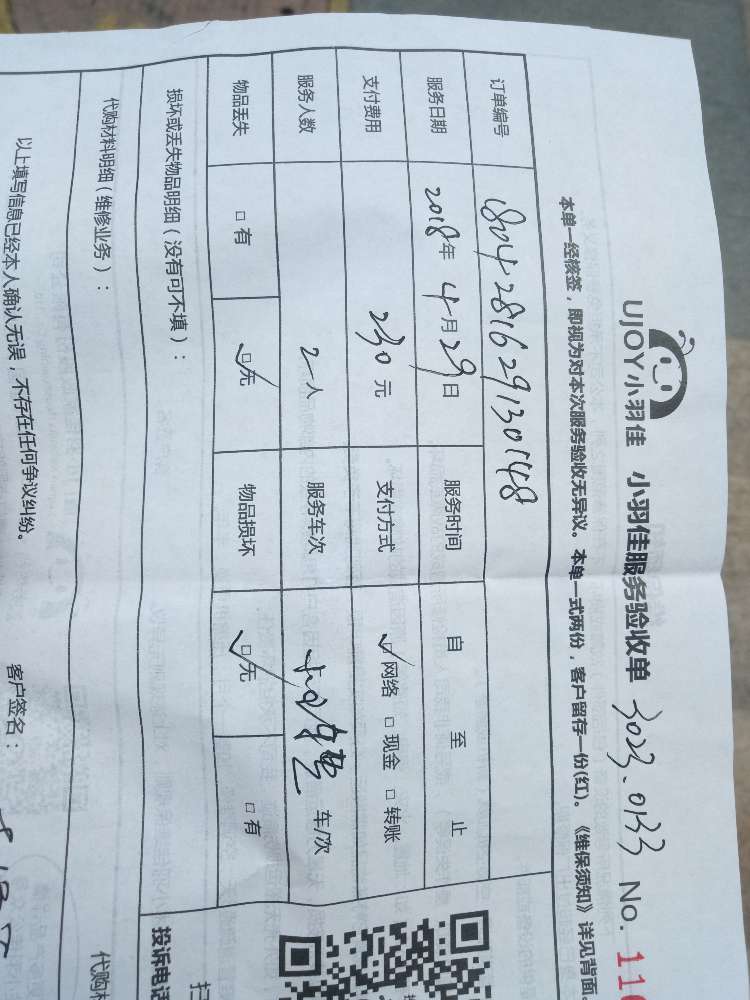 UJOY小羽佳 小羽佳服务验收单 3023.0133 No. 116
本单一经核签，即视为对本次服务验收无异议。本单一式两份，客户留存一份(红)。《维保须知》详见背面。
订单编号 1804281629130148
服务日期 2018年 4月29日 服务时间 自 至 止
支付费用 230元 支付方式 ☑网络 □现金 □转账
服务人数 2人 服务车次 车/次
物品丢失 □有 ☑无 物品损坏 ☑无 □有
损坏或丢失物品明细（没有可不填）：
投诉电话
代购材料明细（维修业务）：
代购
以上填写信息已经本人确认无误，不存在任何争议纠纷。 客户签名：